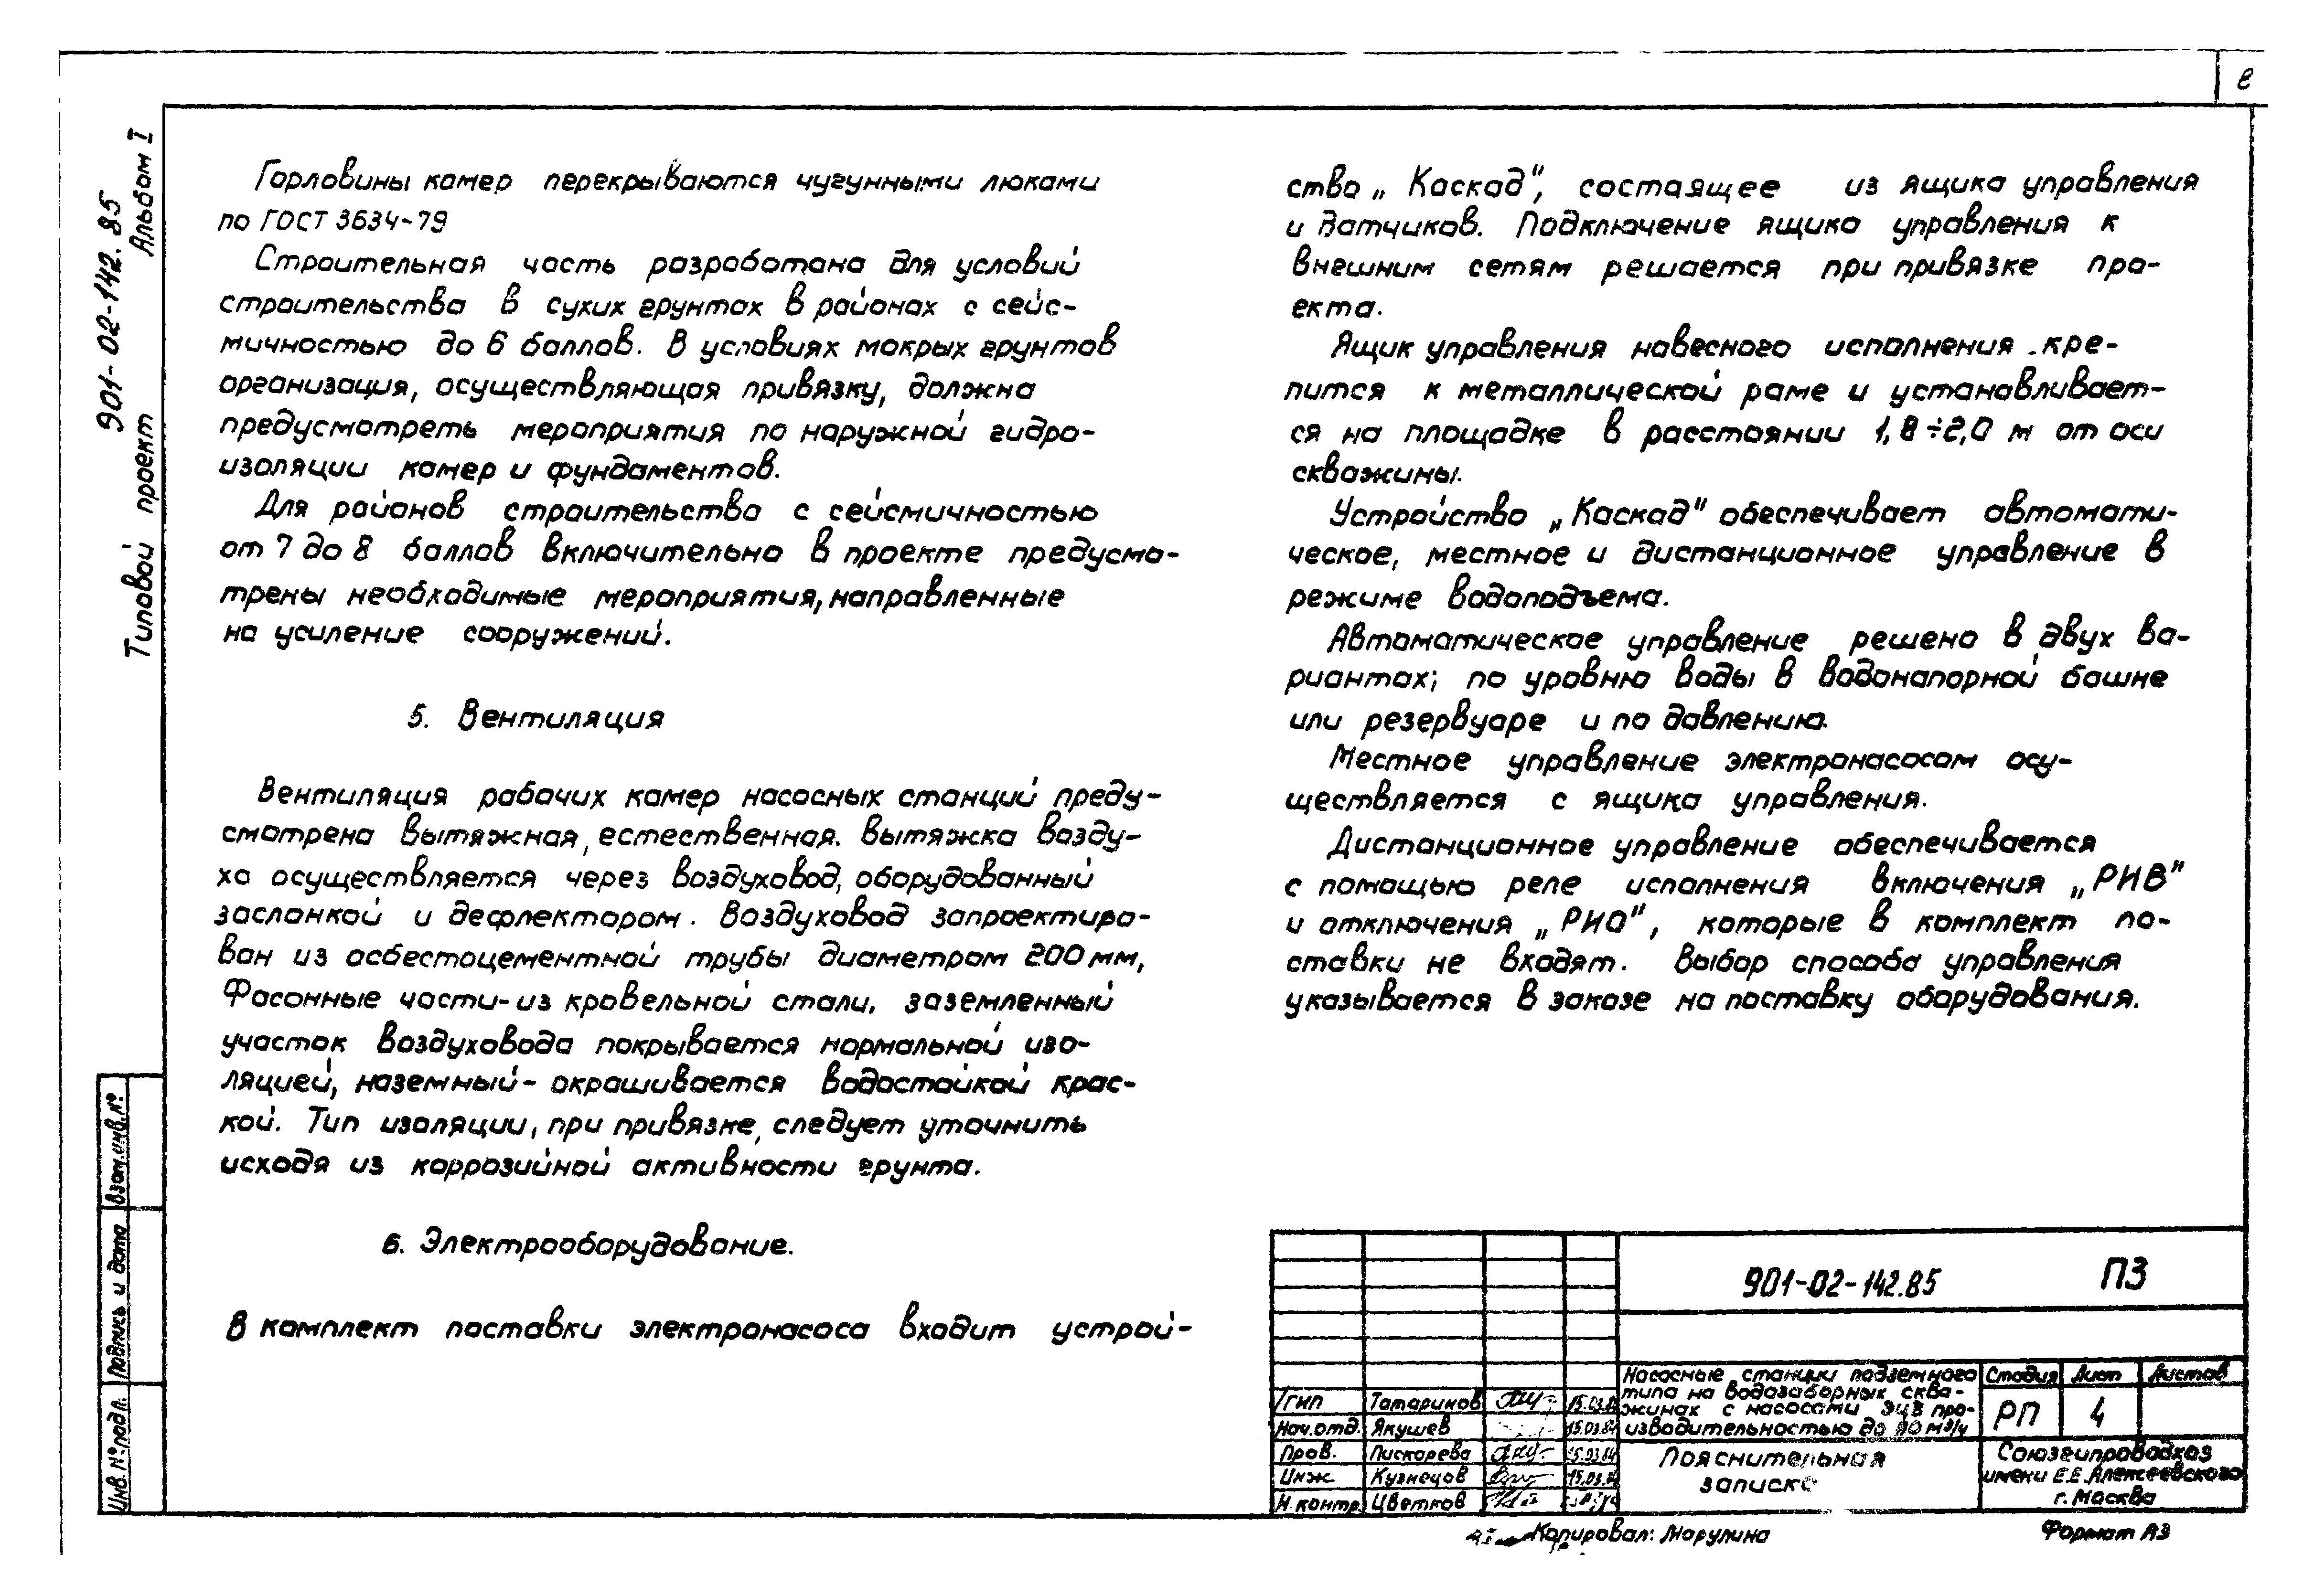 8
Горловины камер перекрываются чугунными люками
по ГОСТ 3634-79
Строительная часть разработана для условий
строительства в сухих грунтах в районах с сейс-
мичностью до 6 баллов. В условиях мокрых грунтов
организация, осуществляющая привязку, должна
предусмотреть мероприятия по наружной гидро-
изоляции камер и фундаментов.
Для районов строительства с сейсмичностью
от 7 до 8 баллов включительно в проекте предусмо-
трены необходимые мероприятия, направленные
на усиление сооружений.
5. Вентиляция
Вентиляция рабочих камер насосных станций преду-
смотрена вытяжная, естественная. Вытяжка возду-
ха осуществляется через воздуховод, оборудованный
заслонкой и дефлектором. Воздуховод запроектиро-
ван из асбестоцементной трубы диаметром 200 мм,
Фасонные части - из кровельной стали, заземленный
участок воздуховода покрывается нормальной изо-
ляцией, наземный - окрашивается водостойкой крас-
кой. Тип изоляции, при привязке, следует уточнить
исходя из коррозийной активности грунта.
6. Электрооборудование.
В комплект поставки электронасоса входит устрой-
ство „Каскад", состоящее из ящика управления
и датчиков. Подключение ящика управления к
внешним сетям решается при привязке про-
екта.
Ящик управления навесного исполнения кре-
пится к металлической раме и устанавливает-
ся на площадке в расстоянии 1,8÷2,0 м от оси
скважины.
Устройство „Каскад" обеспечивает автомати-
ческое, местное и дистанционное управление в
режиме водоподъема.
Автоматическое управление решено в двух ва-
риантах; по уровню воды в водонапорной башне
или резервуаре и по давлению.
Местное управление электронасосом осу-
ществляется с ящика управления.
Дистанционное управление обеспечивается
с помощью реле исполнения включения „РИВ"
и отключения „РИО", которые в комплект по-
ставки не входят. Выбор способа управления
указывается в заказе на поставку оборудования.
Типовой проект 901-02-142.85
Альбом I
Взам.инв.№
Подпись и дата
Инв.№подл.
901-02-142.85 ПЗ
ГИП Татаринов 15.03.84
Нач.отд. Якушев 15.03.84
Пров. Пискарева 15.03.84
Инж. Кузнецов 15.03.84
Н.контр. Цветков
Насосные станции подземного
типа на водозаборных сква-
жинах с насосами ЭЦВ про-
изводительностью до м3/ч
Стадия Лист Листов
РП 4
Пояснительная
записка
Союзгипроводхоз
имени Е.Е.Алексеевского
г. Москва
Копировал: Марулина
Формат А3